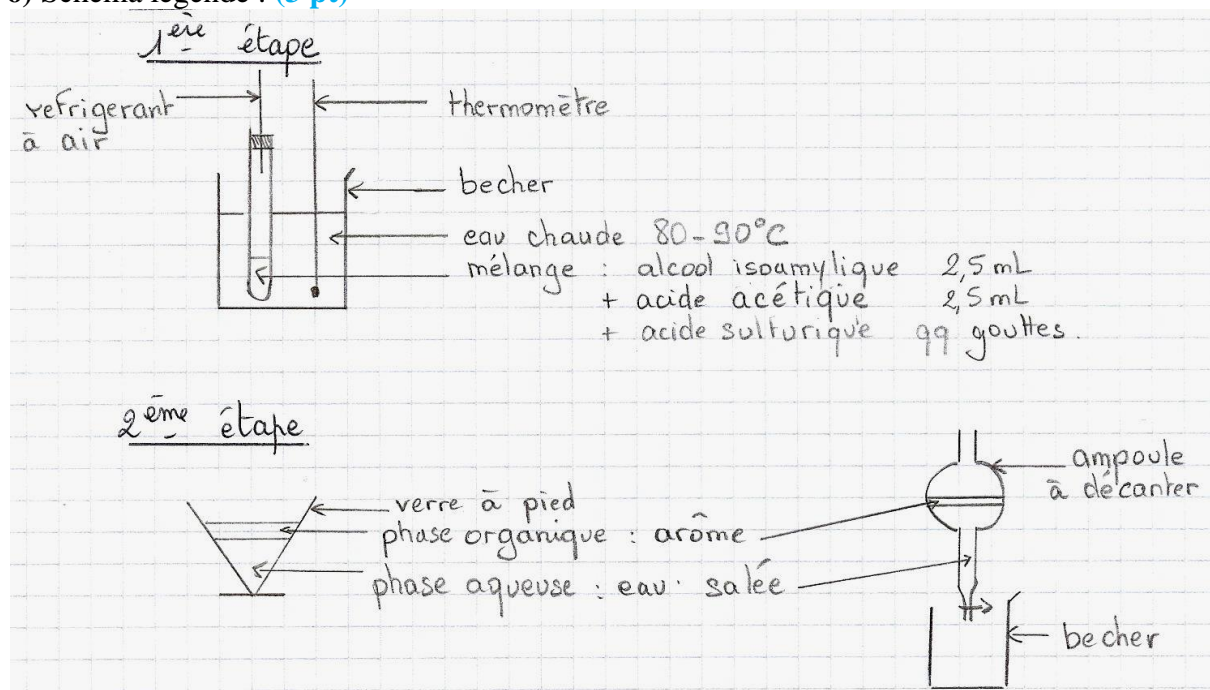 6) Schéma légendé : (3 pt)
1ère étape
refrigerant
à air
thermomètre
becher
eau chaude 80-90°C
mélange : alcool isoamylique 2,5 mL
+ acide acétique 2,5 mL
+ acide sulfurique qq gouttes.
2ème étape
verre à pied
phase organique : arôme
phase aqueuse : eau salée
ampoule
à décanter
becher